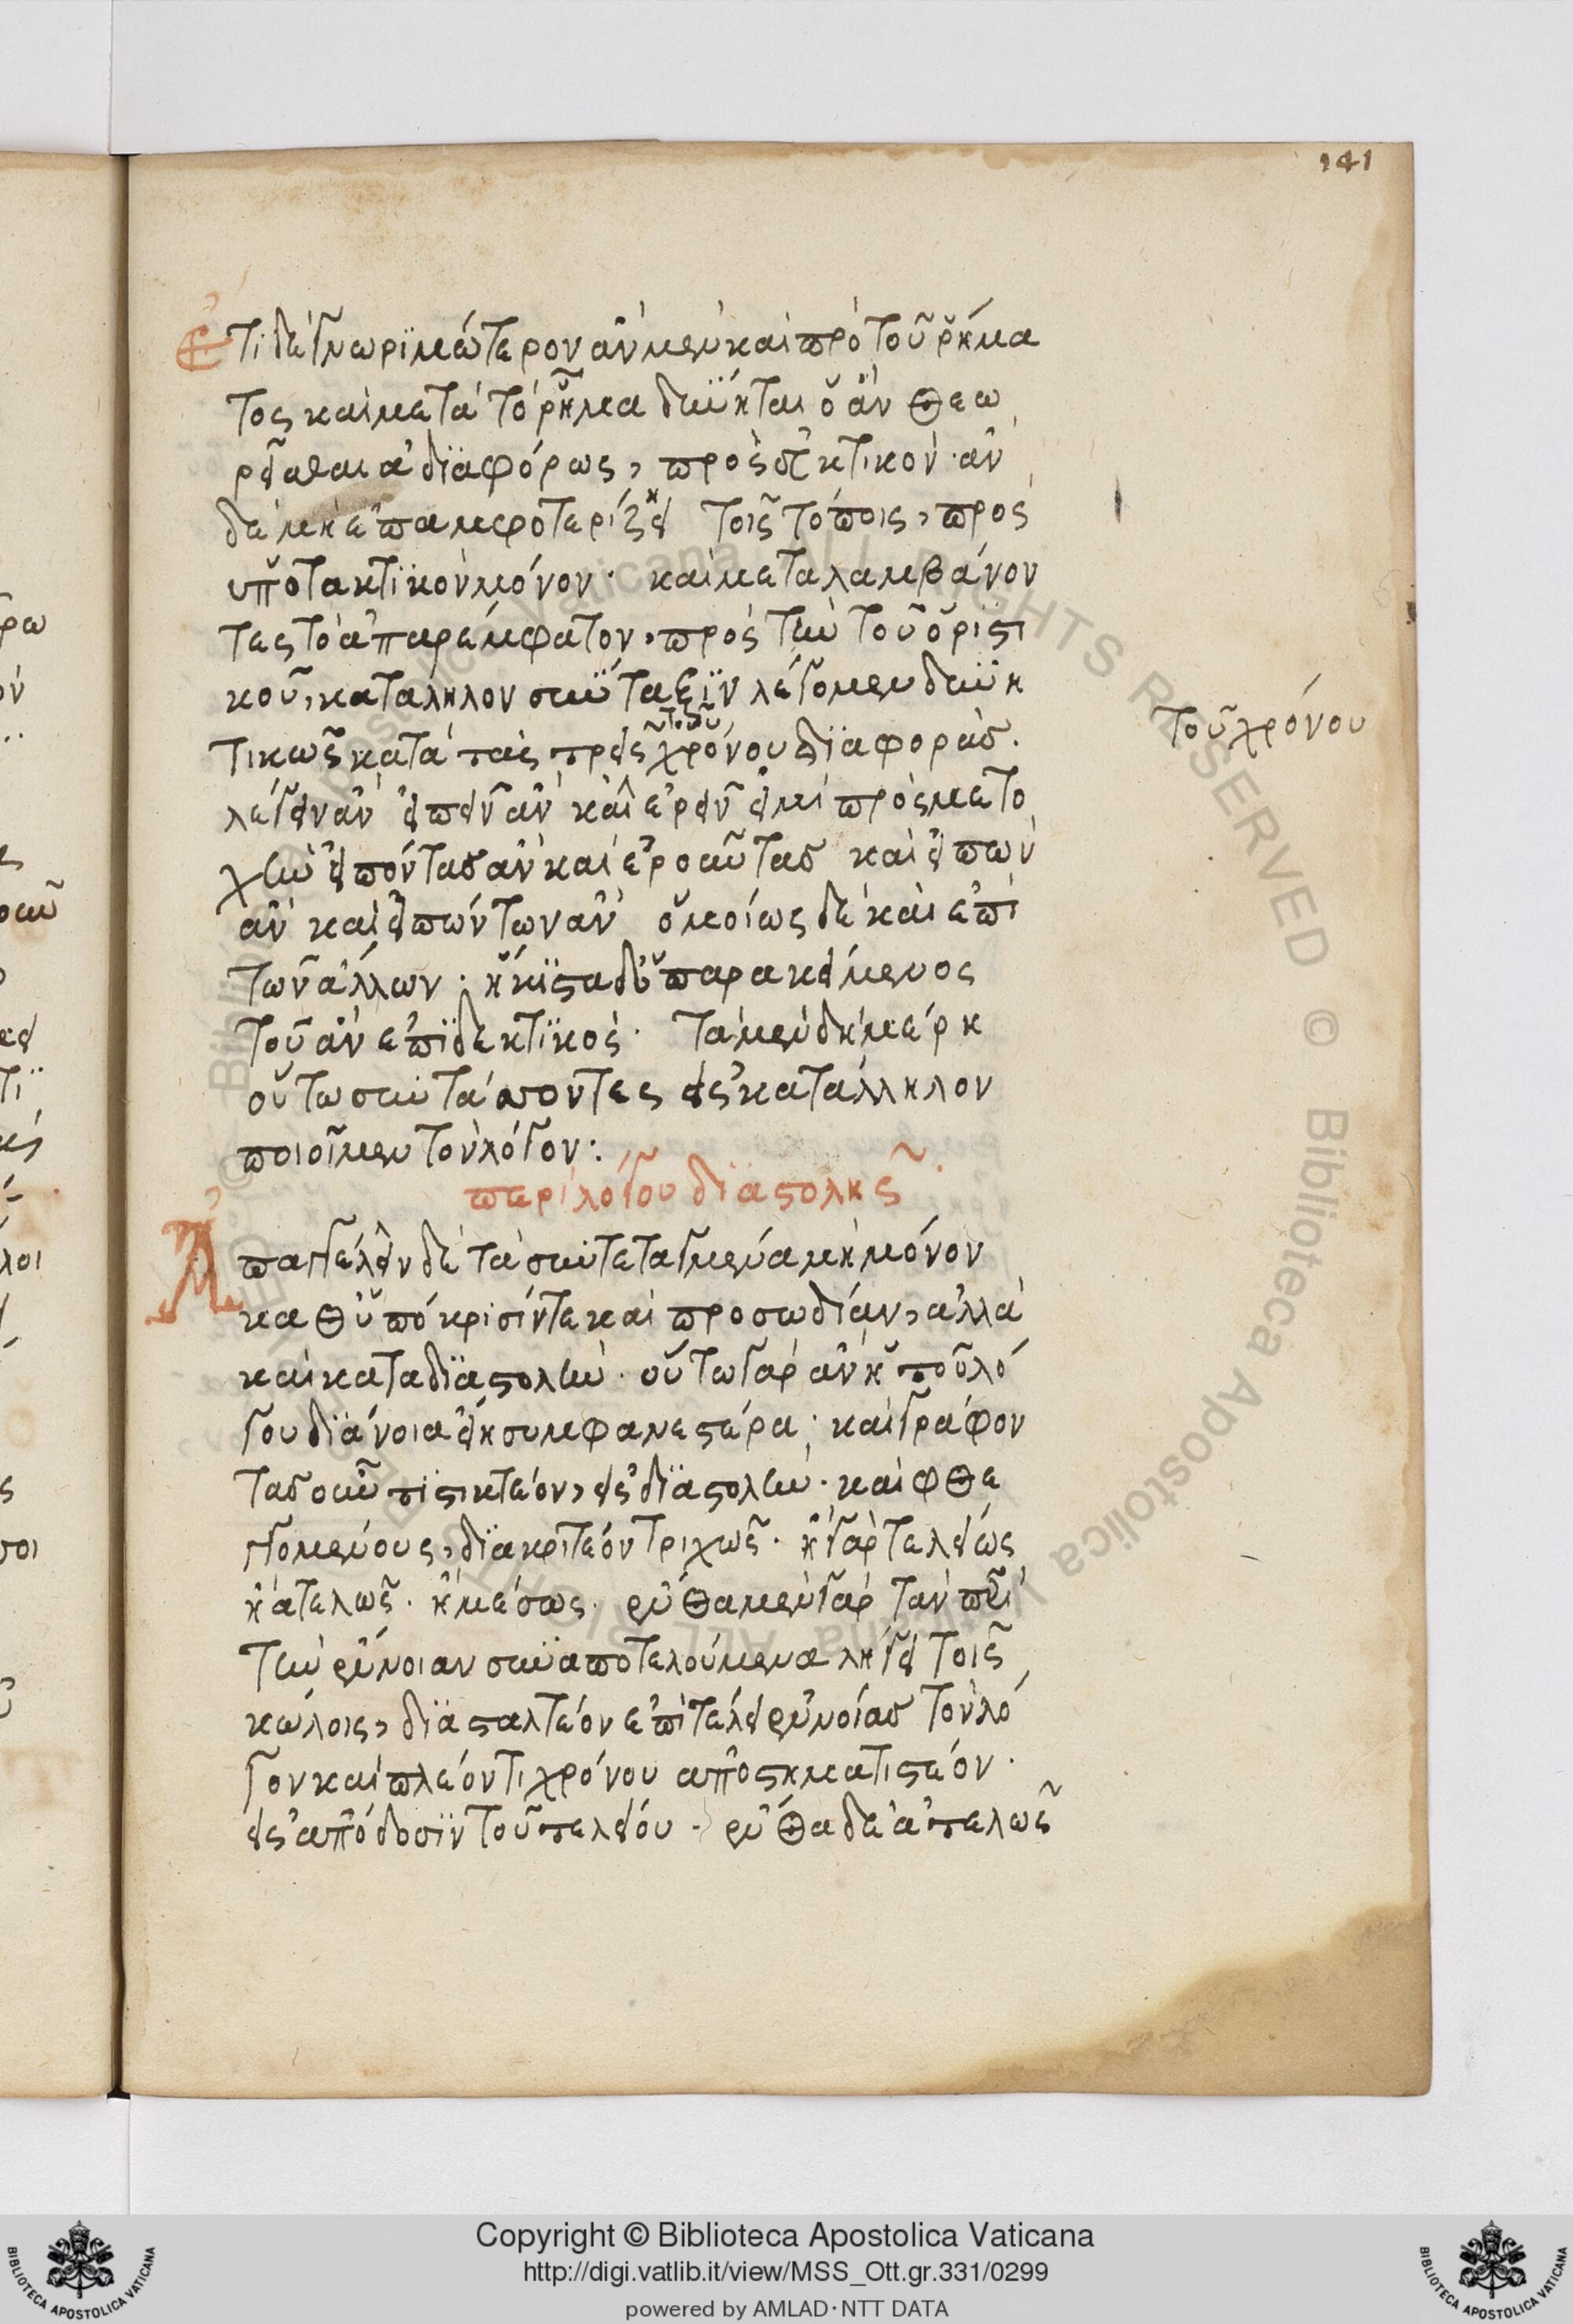 141
Ἔτι δὲ γνωρϊμώτερον ἂν μὲν καὶ πρὸ τοῦ ῥήμα
τος καὶ μετὰ τὸ ῥῆμα δύνηται ὁ ἂν θεω
ρεῖσθαι ἀδϊαφόρως, πρὸς εὐκτικόν· ἂν
δὲ μὴ ἐπαμφοτερίζη τοῖς τόποις, πρὸς
ὑποτακτϊκὸν μόνον· καὶ μεταλαμβάνον
τες τὸ ἀπαρέμφατον, πρὸς τὴν τοῦ ὁρϊστι
κοῦ, κατάληλον σύνταξϊν λέγομεν δυνη
τικῶς κατὰ τὰς τρεῖς τοῦ χρόνου δϊαφοράς.
τοῦ χρόνου
λέγειν ἂν εἰπεῖν ἂν καὶ ἐρεῖν εἰμὶ πρὸς μετο
χὴν εἰπόντας ἂν καὶ ἐροῦντας καὶ εἰπὼν
ἂν καὶ εἰπώντων ἂν ὁμοίως δὲ καὶ ἐπὶ
τῶν ἄλλων· ἥκϊστα δ' ὁ παρακείμενος
τοῦ ἂν ἐπϊδεκτϊκός· τὰ μὲν δὴ μέρη
οὕτω συντάττοντες εἰς κατάλληλον
ποιοῖμεν τὸν λόγον:
περὶ λόγου δϊαστολῆς.
Ἀπαγγέλειν δὲ τὰ συντεταγμένα μὴ μόνον
καθ' ὑπόκρισίν τε καὶ προσωδίαν, ἀλλὰ
καὶ κατὰ δϊαστολήν· οὕτω γὰρ ἂν ἡ τοῦ λό
γου δϊάνοια εἴη συμφανεστέρα· καὶ γράφον
τας οὖν τϊστικτέον, εἰς δϊαστολήν· καὶ φθε
γγομένους, δϊακριτέον τριχῶς· ἢ γὰρ τελείως
ἢ ἀτελῶς· ἢ μέσως· ἔνθα μὲν γὰρ τὰν περὶ
τὴν ἔννοιαν συναποτελούμενα λήγει τοῖς
κώλοις, δϊασταλτέον ἐπὶ τέλει ἐννοίας τὸν λό
γον καὶ πλέον τι χρόνου ἀποσηματιστέον·
εἰς ἀπόδοσϊν τοῦ τελείου· ἔνθα δὲ ἀτελῶς
Copyright © Biblioteca Apostolica Vaticana
http://digi.vatlib.it/view/MSS_Ott.gr.331/0299
powered by AMLAD·NTT DATA
BIBLIOTECA APOSTOLICA VATICANA
BIBLIOTECA APOSTOLICA VATICANA